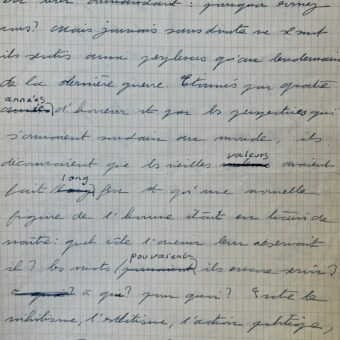 en leur demandant : pourquoi écrivez
vous? Mais jamais sans doute ne se sont
ils sentis aussi perplexes qu'au lendemain
de la dernière guerre. Etonnés par quatre
années
d'horreur et par les perspectives qui
s'ouvraient soudain au monde, ils
découvraient que les vieilles valeurs avaient
fait long feu et qu'une nouvelle
figure de l'homme était en train de
naître: quel rôle l'avenir leur réservait
il? Les mots pouvaient ils encore servir?
à qui? pour quoi? Entre le
nihilisme, l'esthétisme, l'action politique,